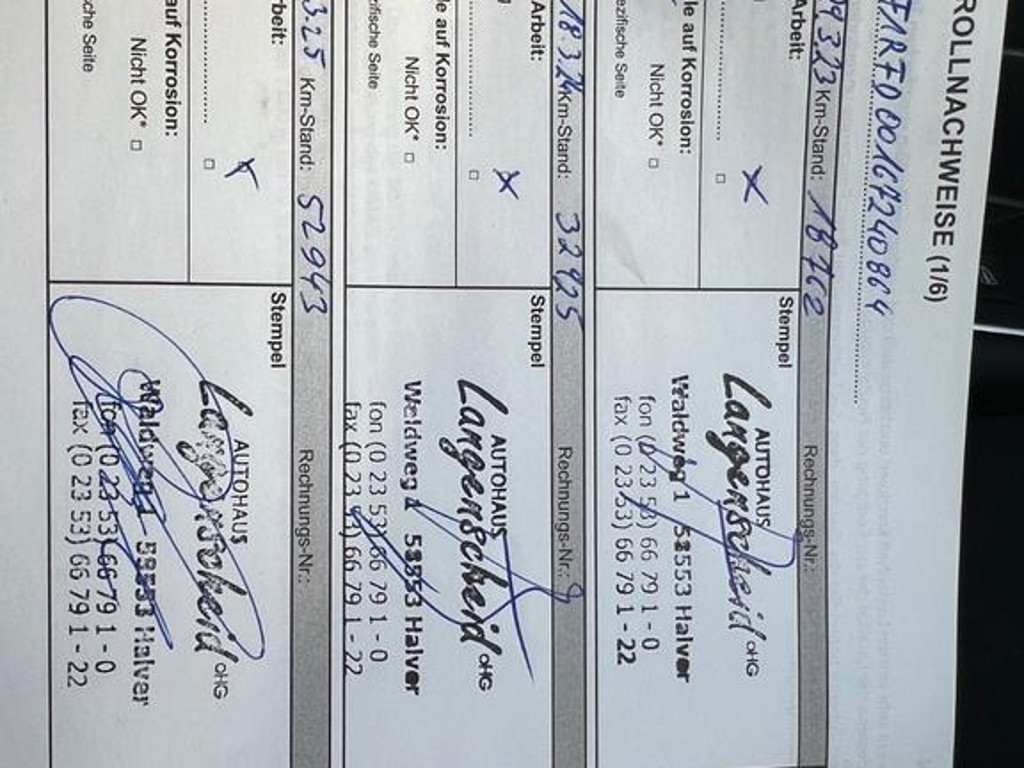 ROLLNACHWEISE (1/6)
F1RFD00167240864
09.3.23 Km-Stand: 18762 Rechnungs-Nr.:
Arbeit:
Stempel
AUTOHAUS
Langenscheid OHG
Waldweg 1 58553 Halver
fon (0 23 53) 66 79 1 - 0
fax (0 23 53) 66 79 1 - 22
le auf Korrosion:
Nicht OK* □
ezifische Seite
18.3.24 Km-Stand: 32425 Rechnungs-Nr.:
Arbeit:
Stempel
AUTOHAUS
Langenscheid OHG
Waldweg 1 58553 Halver
fon (0 23 53) 66 79 1 - 0
fax (0 23 53) 66 79 1 - 22
le auf Korrosion:
Nicht OK* □
zifische Seite
3.25 Km-Stand: 52943 Rechnungs-Nr.:
beit:
Stempel
AUTOHAUS
Langenscheid OHG
Waldweg 1 58553 Halver
fon (0 23 53) 66 79 1 - 0
fax (0 23 53) 66 79 1 - 22
auf Korrosion:
Nicht OK* □
che Seite